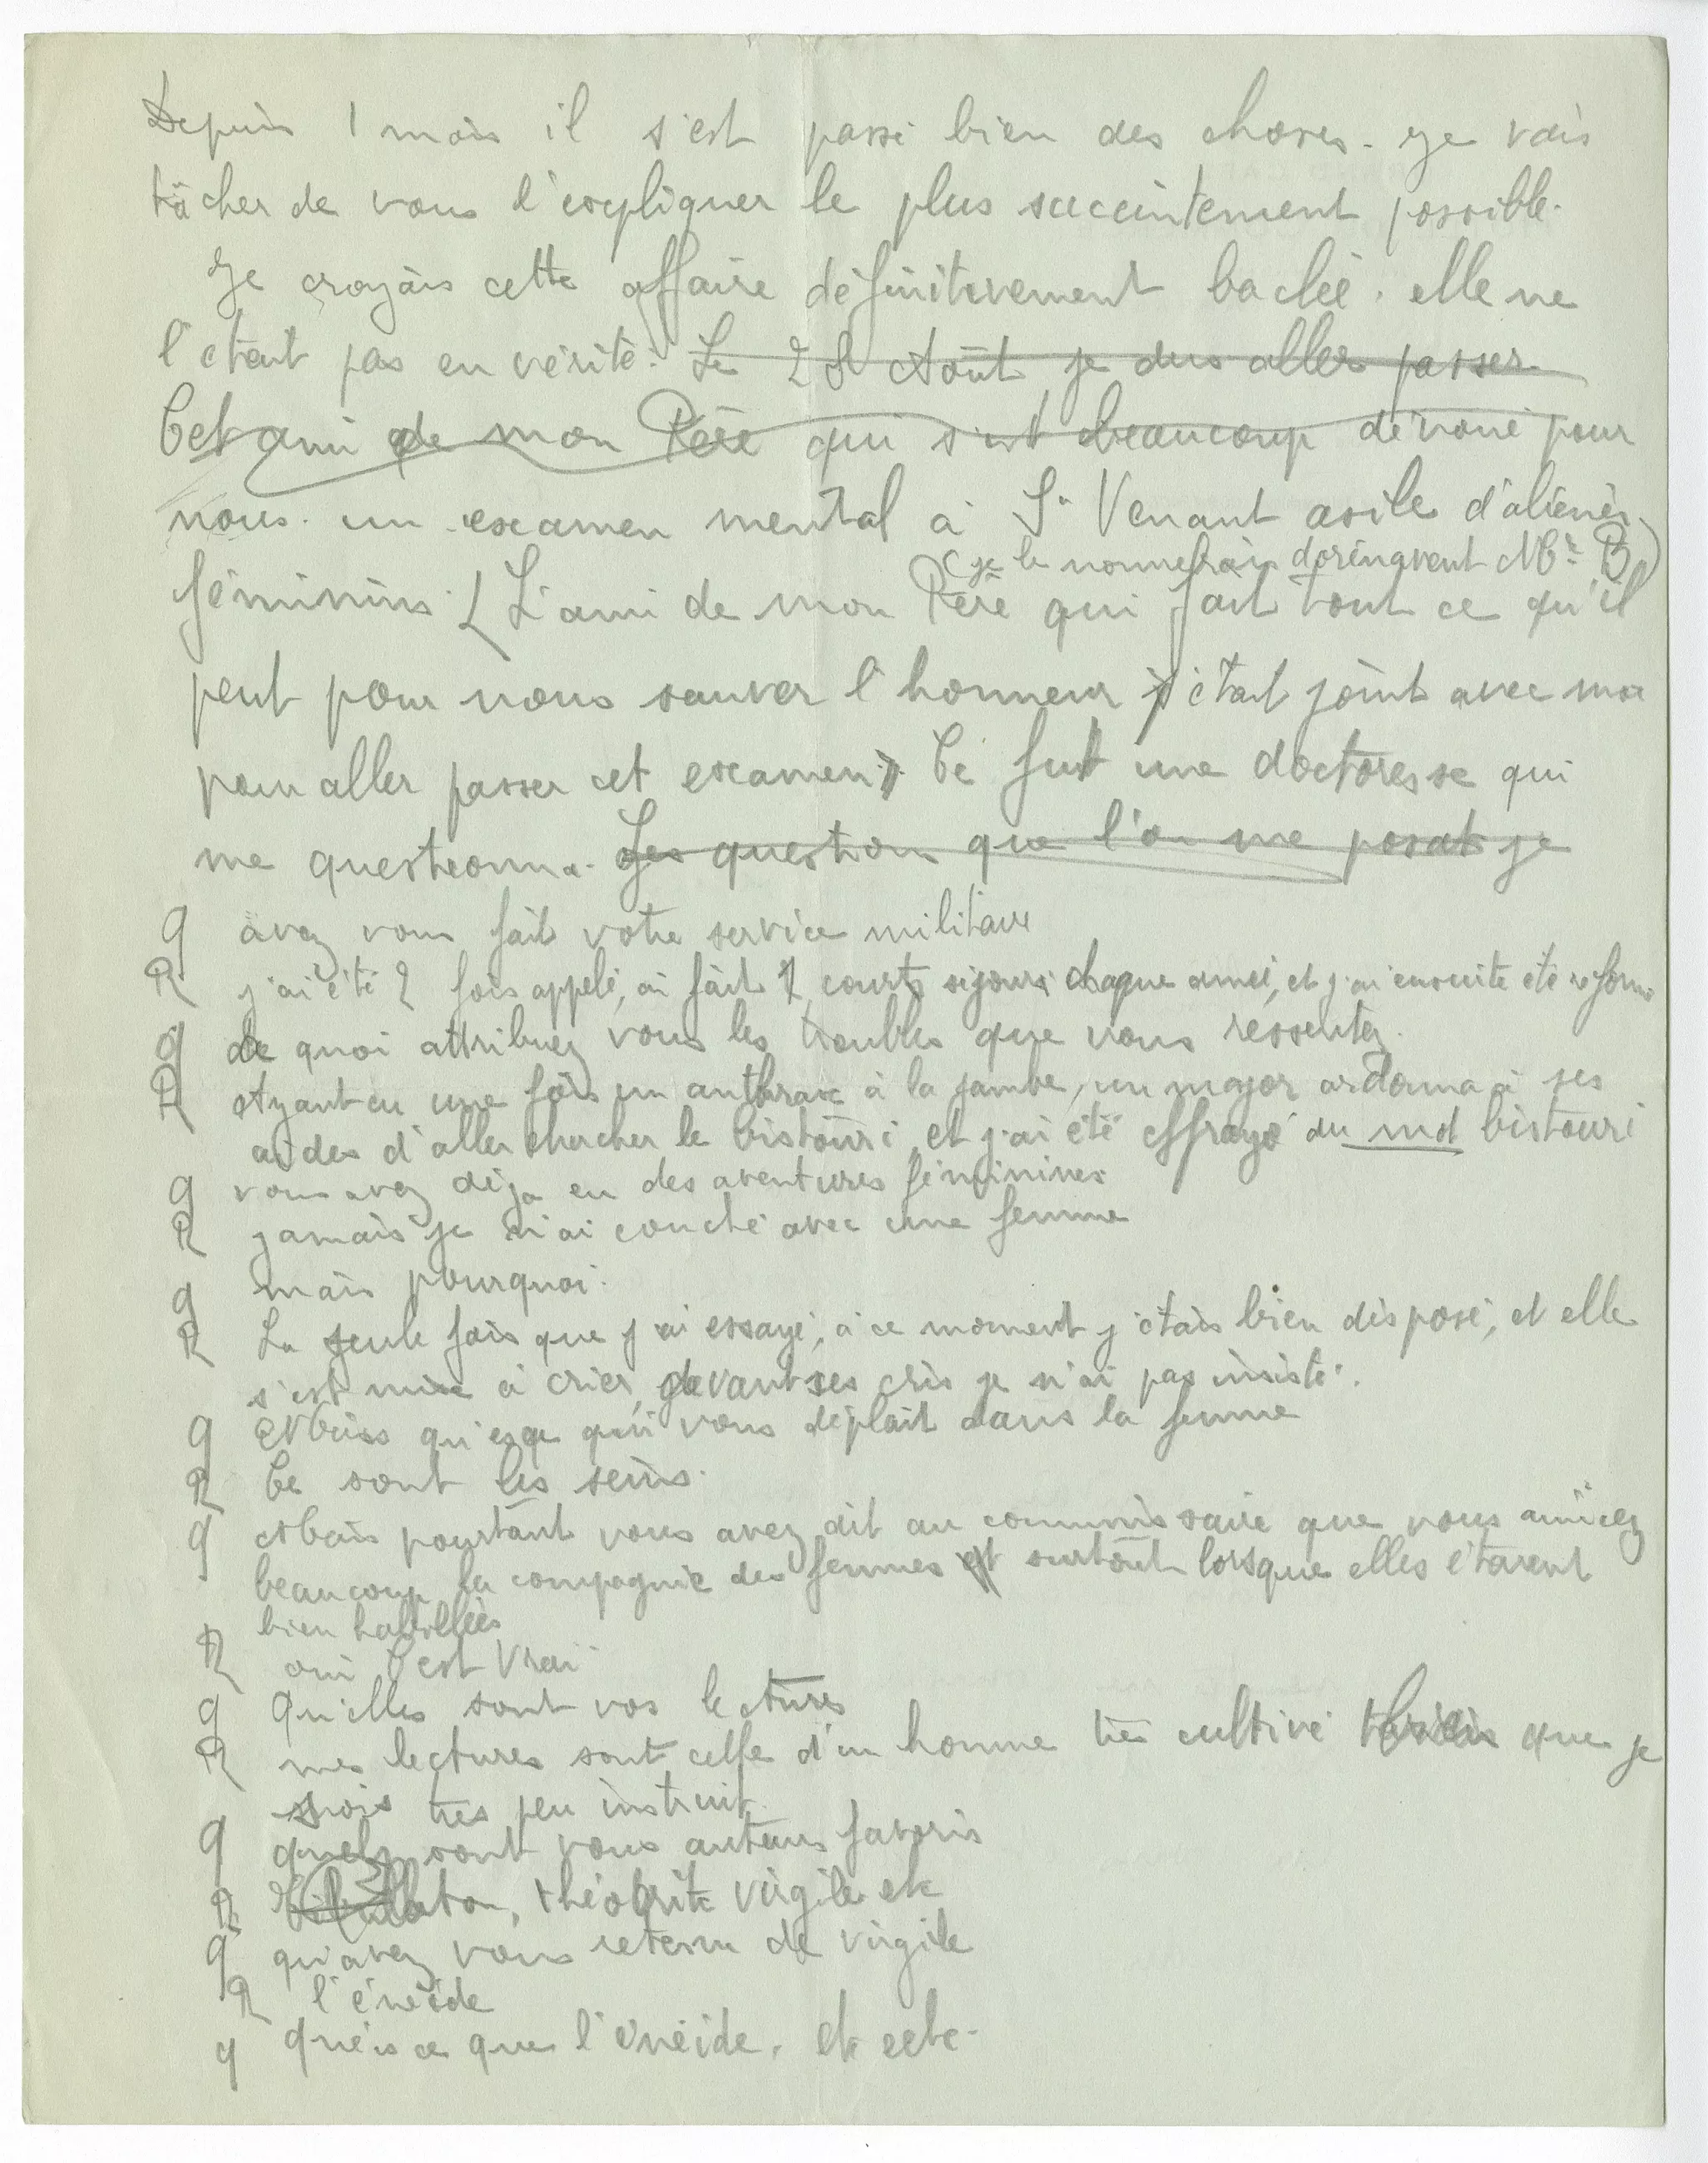 Depuis 1 mois il s'est passé bien des choses. Je vais
tâcher de vous l'expliquer le plus succintement possible.
Je croyais cette affaire définitivement baclée. elle ne
l'était pas en vérité. Le 28 Août je dus aller passer
Cet ami de mon Père qui s'est beaucoup dévoué pour
nous. un examen mental à St Venant asile d'aliénés
(je le nommerais dorénavent Mr B)
féminins. (L'ami de mon Père qui fait tout ce qu'il
peut pour nous sauver l'honneur s'était joint avec moi
pour aller passer cet examen). Ce fut une doctoresse qui
me questionna. Les question que l'on me posat je
q avez vous fait votre service militaire
R j'ai été 2 fois appelé, ai fait 2 courts séjours chaque année, et j'ai ensuite été réformé
q de quoi attribuez vous les troubles que vous ressentez.
R Ayant eu une fois un anthrax à la jambe, un major ordonna à ses
aides d'aller chercher le bistouri, et j'ai été effrayé du mot bistouri
q vous avez déja eu des aventures féminines
R jamais je n'ai couché avec une femme
q mais pourquoi.
R La seule fois que j'ai essayé, à ce moment j'étais bien disposé, et elle
s'est mise à crier, devant ses cris je n'ai pas insisté.
q Mais qu'esce qui vous déplait dans la femme
R Ce sont les seins.
q Mais pourtant vous avez dit au commissaire que vous aimiez
beaucoup la compagnie des femmes et surtout lorsque elles étaient
bien habillées
R oui C'est vrai
q Qu'elles sont vos lectures
R mes lectures sont celle d'un homme très cultivé que je
sois très peu instruit.
q quels sont vous auteurs favoris
R Platon, théocrite virgile etc
q qu'avez vous retenu de virgile
R l'énéide
q qu'éis ce que l'énéide. etc ectc.